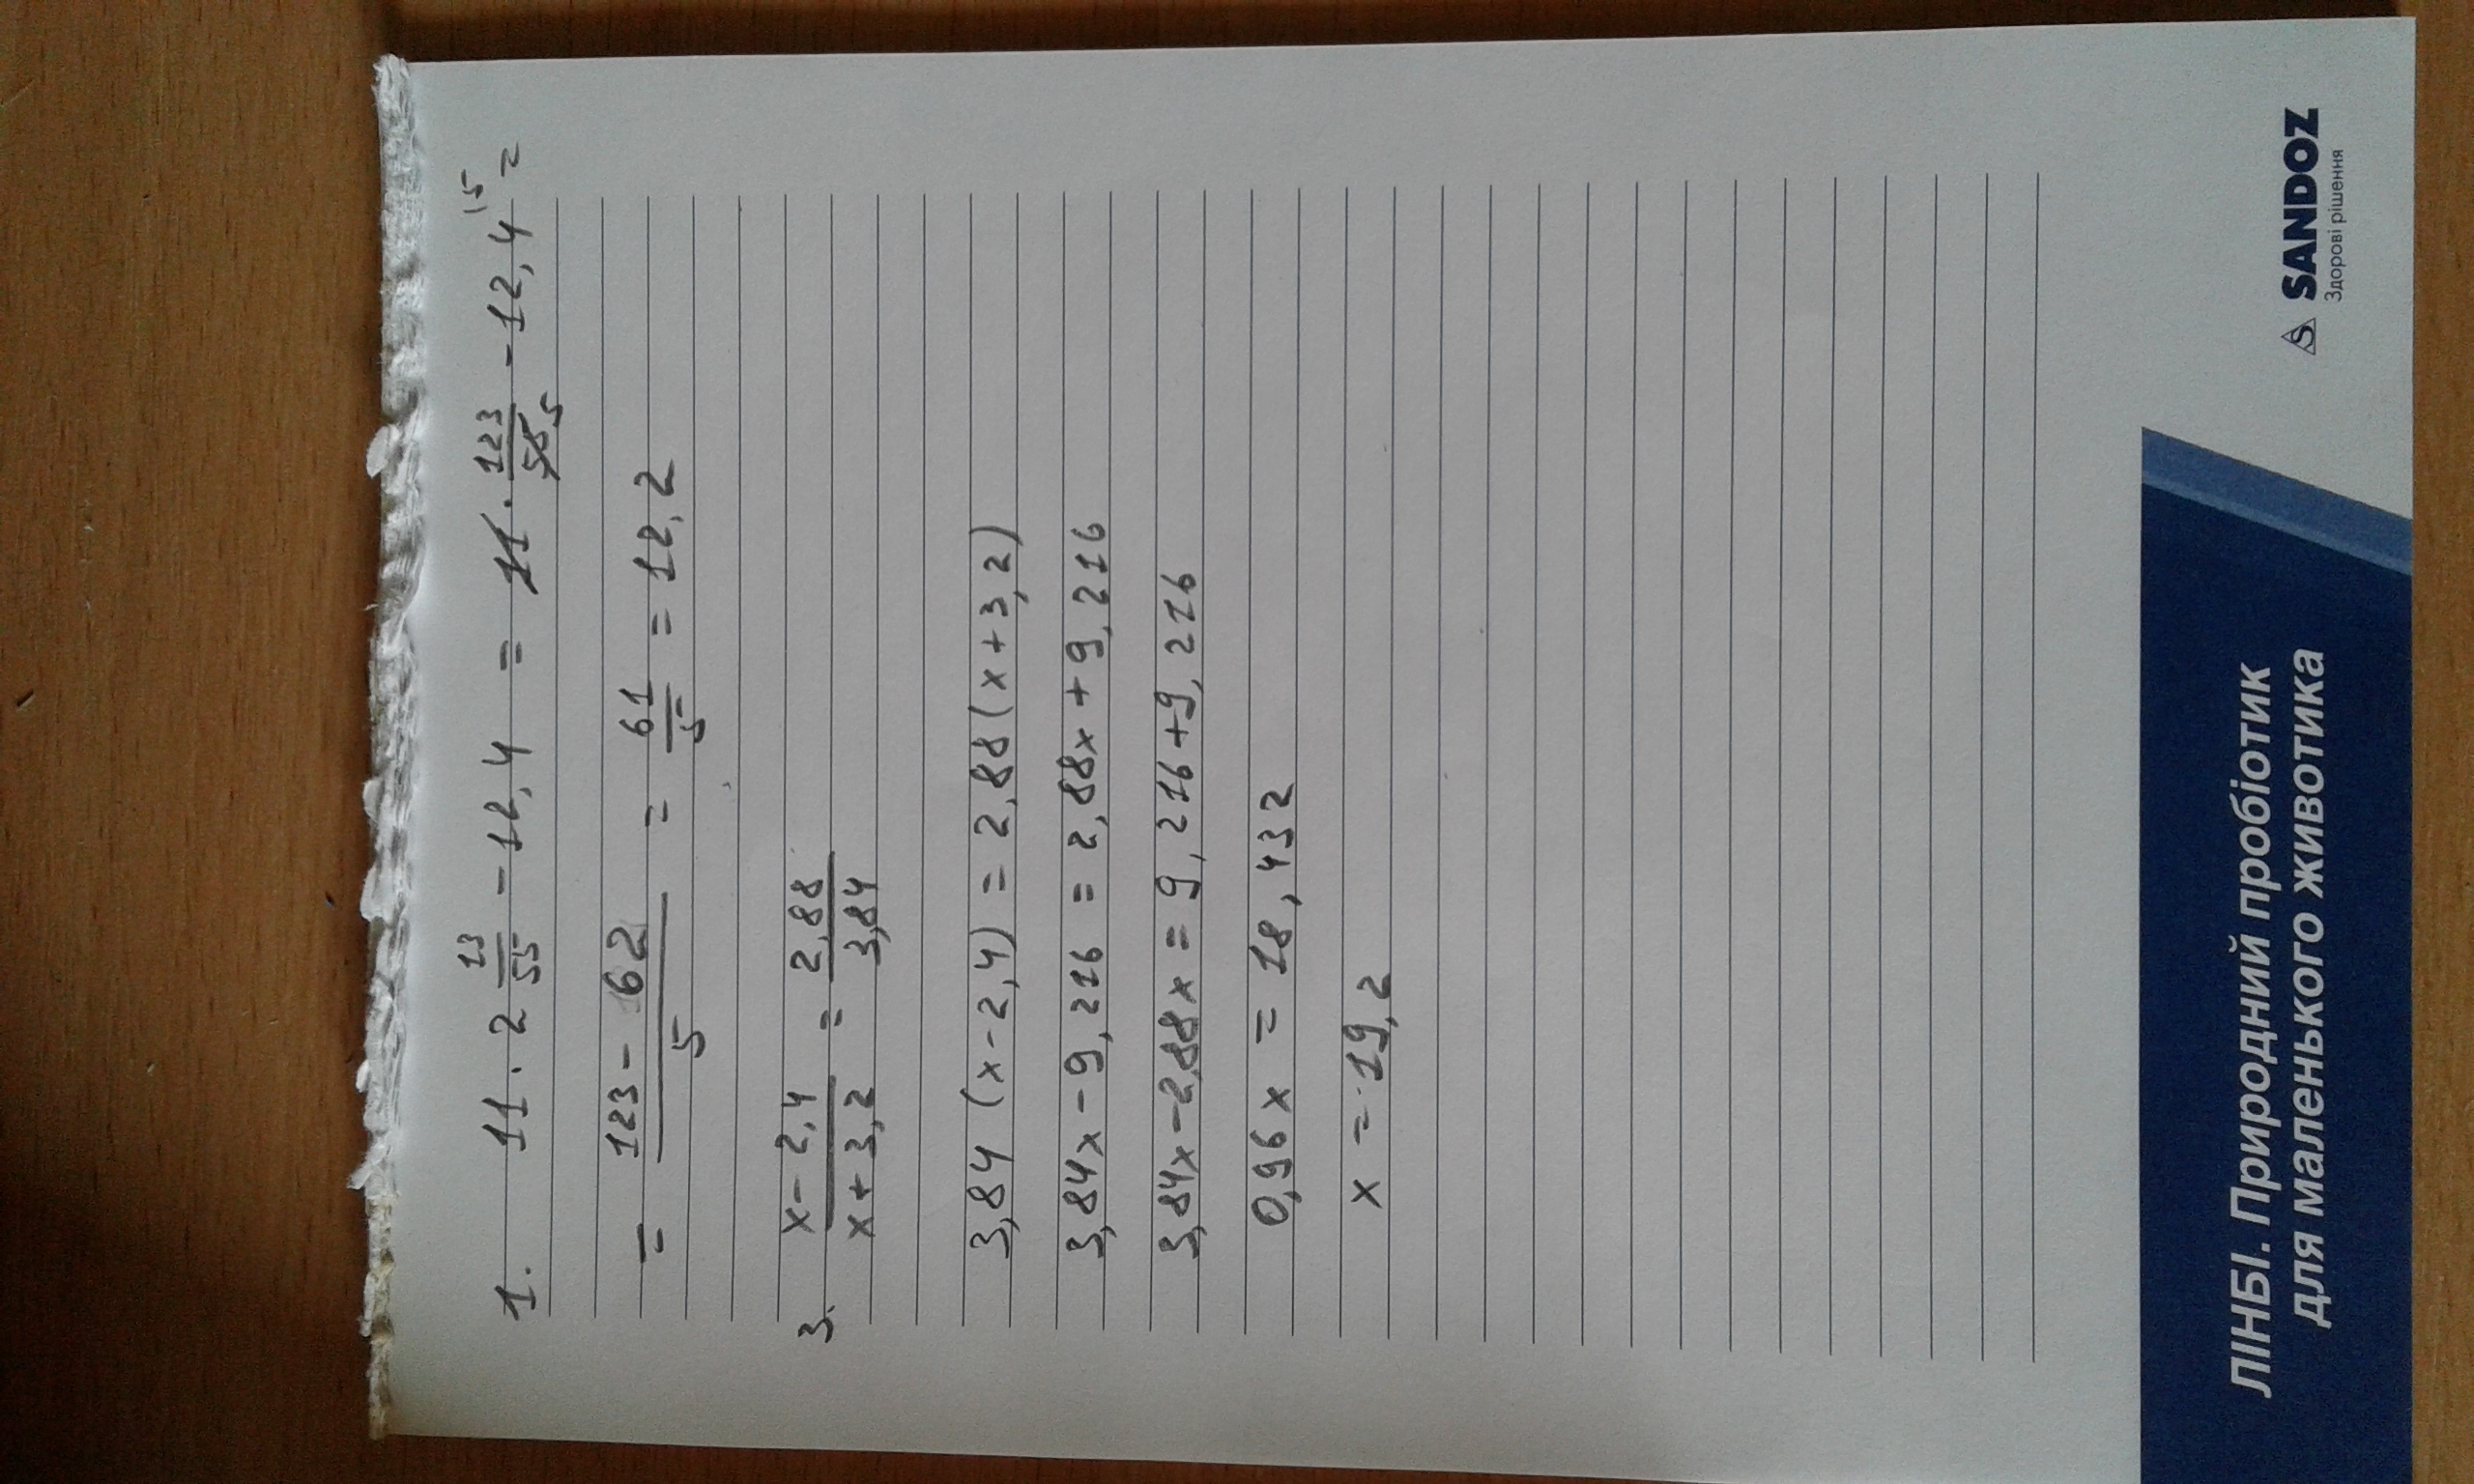 1. 11 · 2 13/55 - 12,4 = 11 · 123/55 5 - 12,4 15 =
= 123 - 62 / 5 = 61/5 = 12,2
3. x - 2,4 / x + 3,2 = 2,88 / 3,84
3,84 (x - 2,4) = 2,88 (x + 3,2)
3,84x - 9,216 = 2,88x + 9,216
3,84x - 2,88x = 9,216 + 9,216
0,96x = 18,432
x = 19,2
ЛІНБІ. Природний пробіотик
для маленького животика
SANDOZ
Здорові рішення